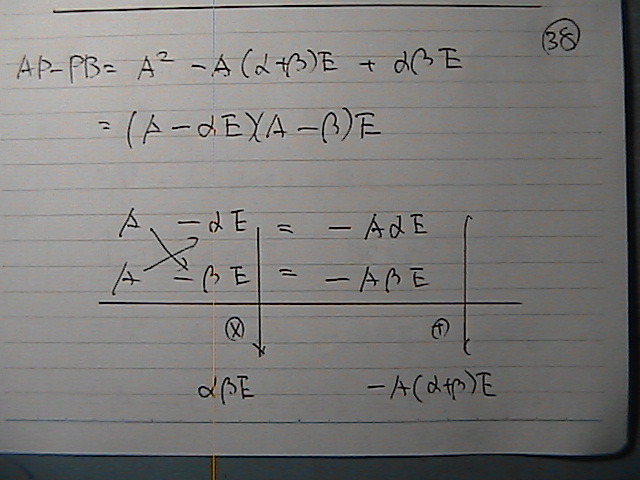 ㊳
AP-PB= A² -A(α+β)E + αβE
= (A-αE)(A-β)E
A -αE = -AαE
A -βE = -AβE
ⓧ ⊕
αβE -A(α+β)E